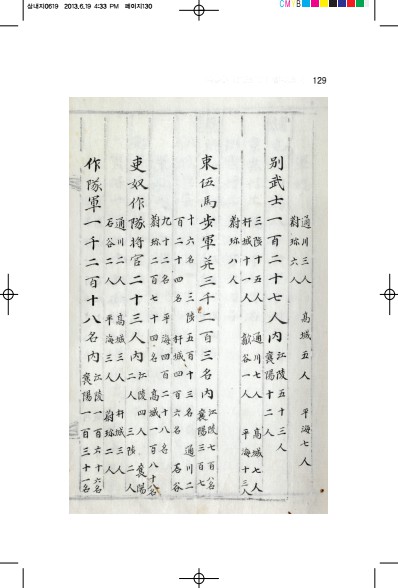 삼내지0619 2013.6.19 4:33 PM 페이지130
129
通川三人 高城五人 平海七人
蔚珍六人
別武士一百二十七人內 江陵五十三人
襄陽十二人
三陟十五人 通川七人 高城七人
杆城十一人 歙谷一人 平海十三人
蔚珍八人
束伍馬步軍并三千一百三名內 江陵七百八名
襄陽三百七
十六名 三陟五百十三名 通川二
百二十四名 杆城四百六名 石谷
九十二名 平海四百二十八名
蔚珍二百七十四名 高城一百八十名
吏奴作隊將官二十三人內 江陵四人 襄陽
二人 三陟二人
通川二人 高城三人 杆城三人
石谷二人 平海三人 蔚珍二人
作隊軍一千二百十八名內 江陵一百六十六名
襄陽一百三十一名